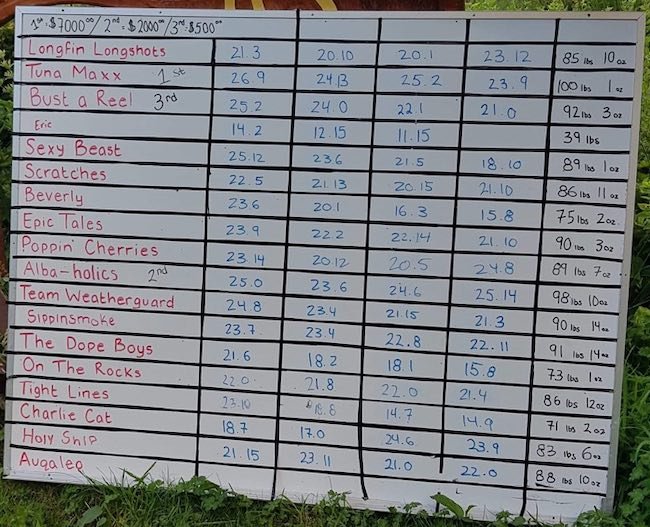 1st = $7000.00 / 2nd = $2000.00 / 3rd = $500.00
Longfin Longshots 21.3 20.10 20.1 23.12 85 lbs 10 oz
Tuna Maxx 1st 26.9 24.13 25.2 23.9 100 lbs 1 oz
Bust a Reel 3rd 25.2 24.0 22.1 21.0 92 lbs 3 oz
Eric 14.2 12.15 11.15 39 lbs
Sexy Beast 25.12 23.6 21.5 18.10 89 lbs 1 oz
Scratches 22.5 21.13 20.15 21.10 86 lbs 11 oz
Beverly 23.6 20.1 16.3 15.8 75 lbs 2 oz
Epic Tales 23.9 22.2 22.14 21.10 90 lbs 3 oz
Poppin' Cherries 23.14 20.12 20.5 24.8 89 lbs 7 oz
Alba-holics 2nd 25.0 23.6 24.6 25.14 98 lbs 10 oz
Team Weatherguard 24.8 23.4 21.15 21.3 90 lbs 14 oz
Sippinsmoke 23.7 23.4 22.8 22.11 91 lbs 14 oz
The Dope Boys 21.6 18.2 18.1 15.8 73 lbs 1 oz
On The Rocks 22.0 21.8 22.0 21.4 86 lbs 12 oz
Tight Lines 23.10 18.8 14.7 14.9 71 lbs 2 oz
Charlie Cat 18.7 17.0 24.6 23.9 83 lbs 6 oz
Holy Ship 21.15 23.11 21.0 22.0 88 lbs 10 oz
Auqaleo